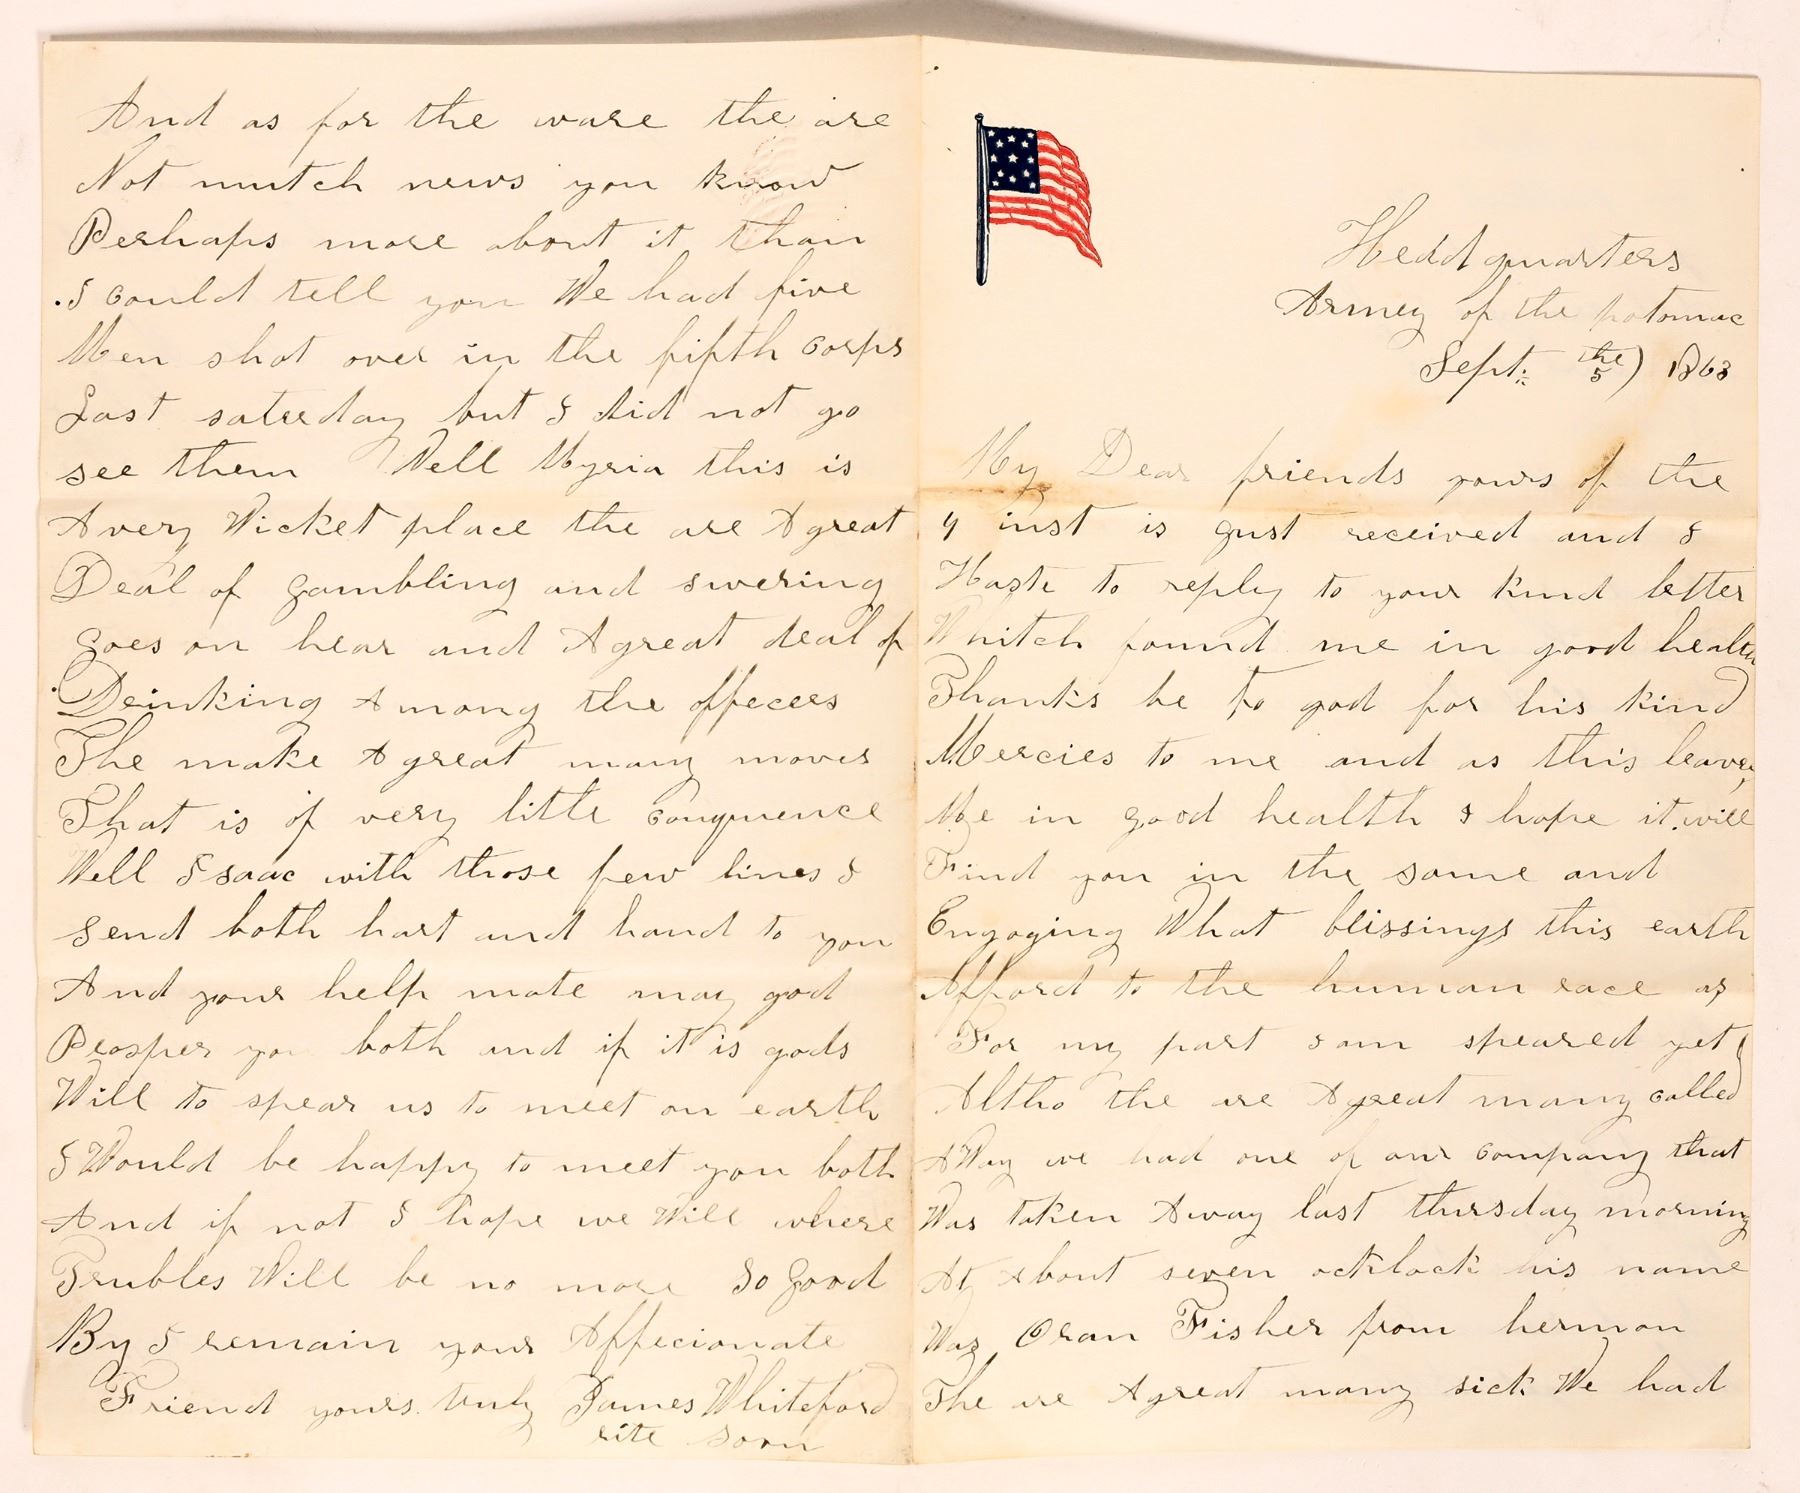 Hedd quarters
Armey of the potomac
Sept. the 5) 1863
My Dear friends yours of the
4 inst is gust received and I
Haste to reply to your kind letter
Whitch found me in good health
Thanks be to god for his kind
Mercies to me and as this leaves
Me in good health I hope it will
Find you in the same and
Engoging What blissings this earth
Afford to the human race as
For my part I am speared yet
Altho the are A great many called
A Way we had one of our company that
Was taken Away last thursday morning
At About seven ocklock his name
Was Oran Fisher from hermon
The are A great many sick We had
And as for the ware the are
Not mutch news you know
Perhaps more about it than
I could tell you We had five
Men shot over in the fifth corps
Last saterday but I did not go
see them Well Myria this is
A very Wicket place the are A great
Deal of gambling and swering
goes on hear and A great deal of
Drinking Among the offecers
The make A great many moves
That is of very little conquence
Well Isaac with those few lines I
send both hart and hand to you
And your help mate may god
Prosper you both and if it is gods
Will to spear us to meet on earth
I Would be happy to meet you both
And if not I hope we Will where
Trubles Will be no more So good
By I remain your Affecionate
Friend yours truly James Whiteford
rite soon